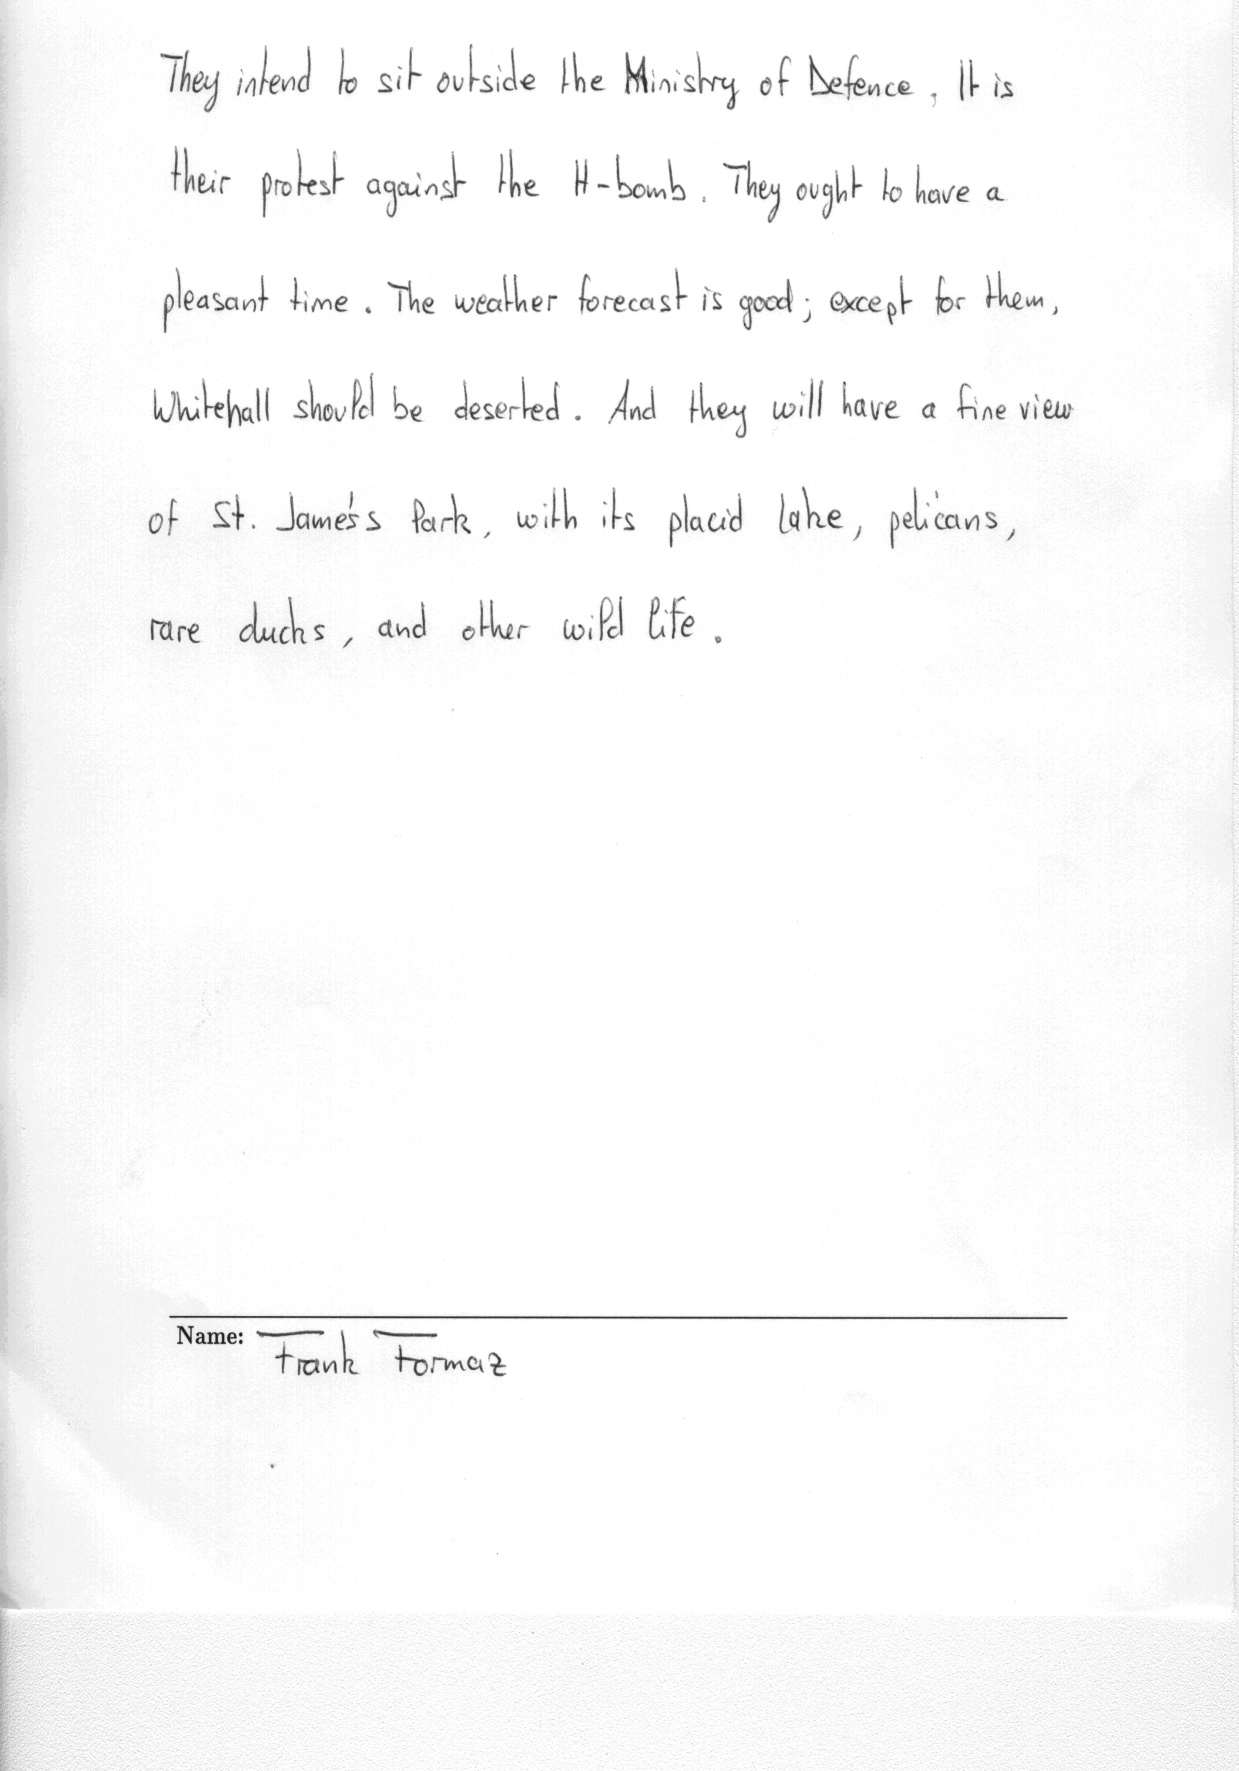 They intend to sit outside the Ministry of Defence. It is
their protest against the H-bomb. They ought to have a
pleasant time. The weather forecast is good; except for them,
Whitehall should be deserted. And they will have a fine view
of St. James's Park, with its placid lake, pelicans,
rare ducks, and other wild life.
Name: Frank Formaz